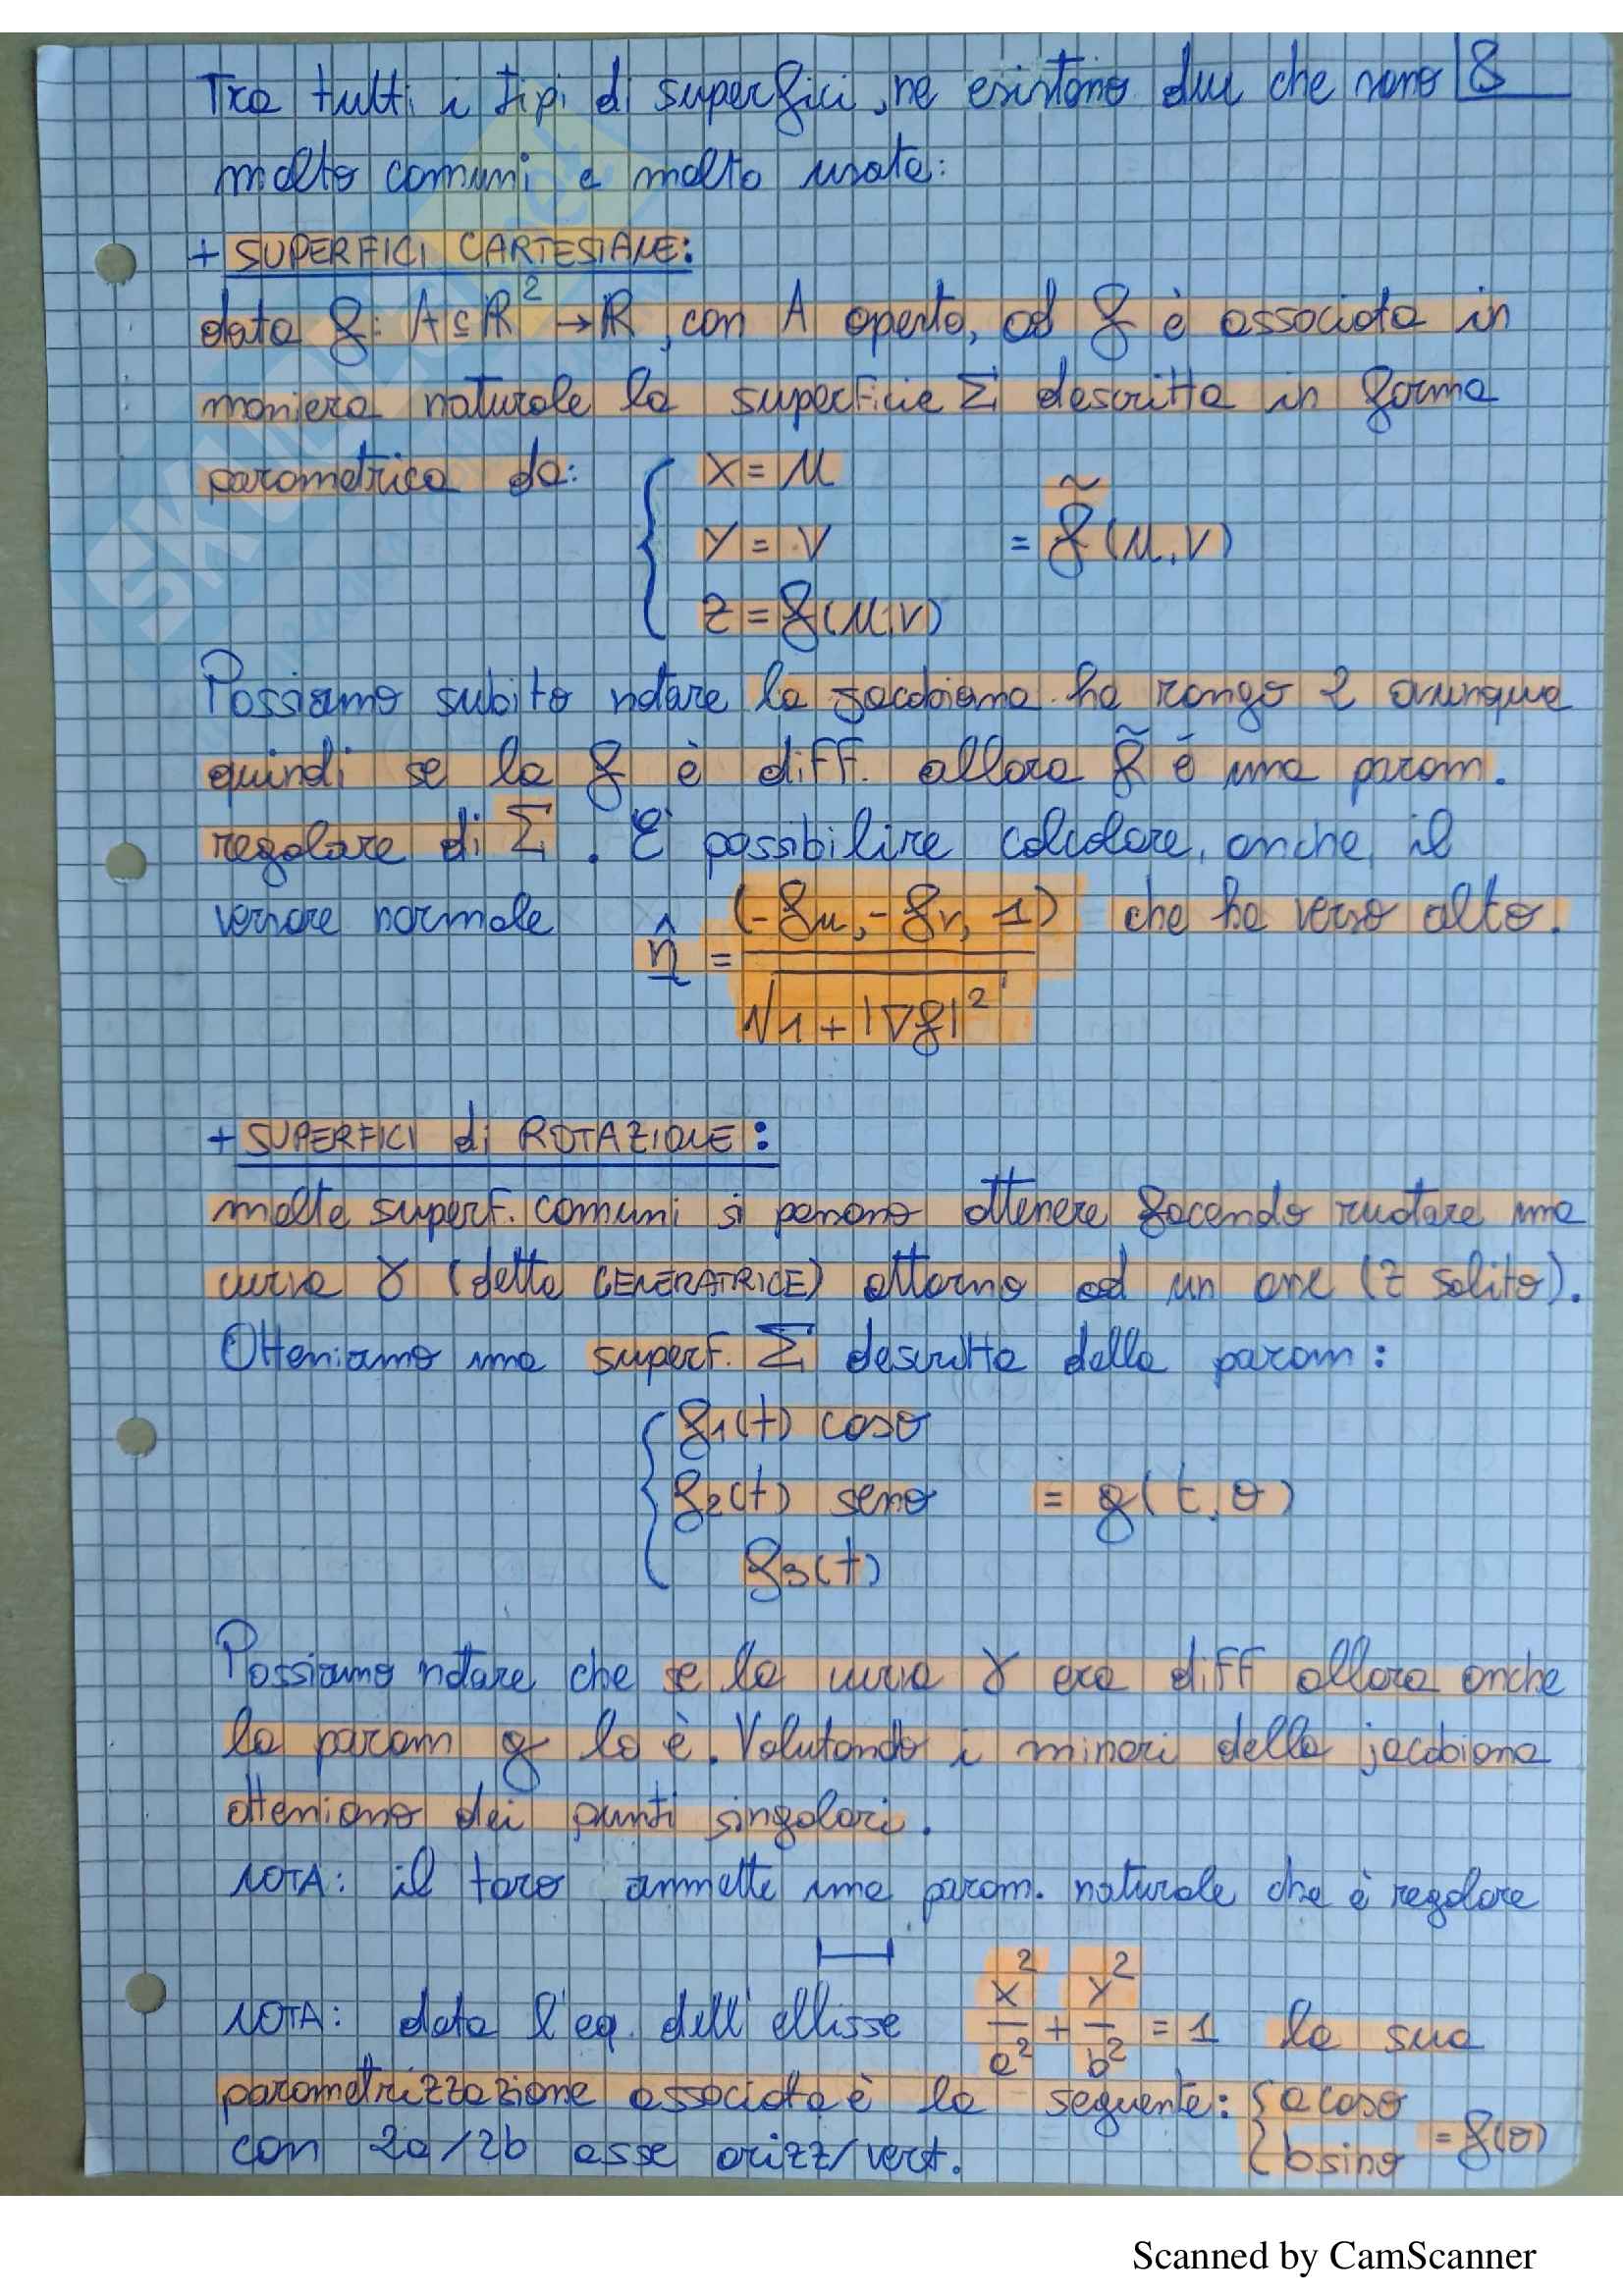 Tra tutti i tipi di superfici, ne esistono due che sono 8
molto comuni e molto usate:
+ SUPERFICI CARTESIANE:
data f: A⊆ℝ² → ℝ, con A aperto, ad f è associata in
maniera naturale la superficie Σ descritta in forma
parametrica da: { x = u
y = v = f̃(u,v)
z = f(u,v)
Possiamo subito notare la jacobiana ha rango 2 ovunque
quindi se la f è diff. allora f̃ è una param.
regolare di Σ. È possibilire calcolare, anche, il
versore normale n̂ = (-fu, -fv, 1) / √1+|∇f|² che ha verso alto.
+ SUPERFICI di ROTAZIONE:
molte superf. comuni si possono ottenere facendo ruotare una
curva γ (detta GENERATRICE) attorno ad un asse (z solito).
Otteniamo una superf. Σ descritta dalla param:
{ f1(t) cosθ
f2(t) senθ = g(t,θ)
f3(t)
Possiamo notare che se la curva γ era diff allora anche
la param g lo è. Valutando i minori della jacobiana
otteniamo dei punti singolari.
NOTA: il toro ammette una param. naturale che è regolare
NOTA: data l'eq. dell'ellisse x²/a² + y²/b² = 1 la sua
parametrizzazione associata è la seguente: { a cosθ
con 2a/2b asse orizz/vert. { b sinθ = f(θ)
Scanned by CamScanner